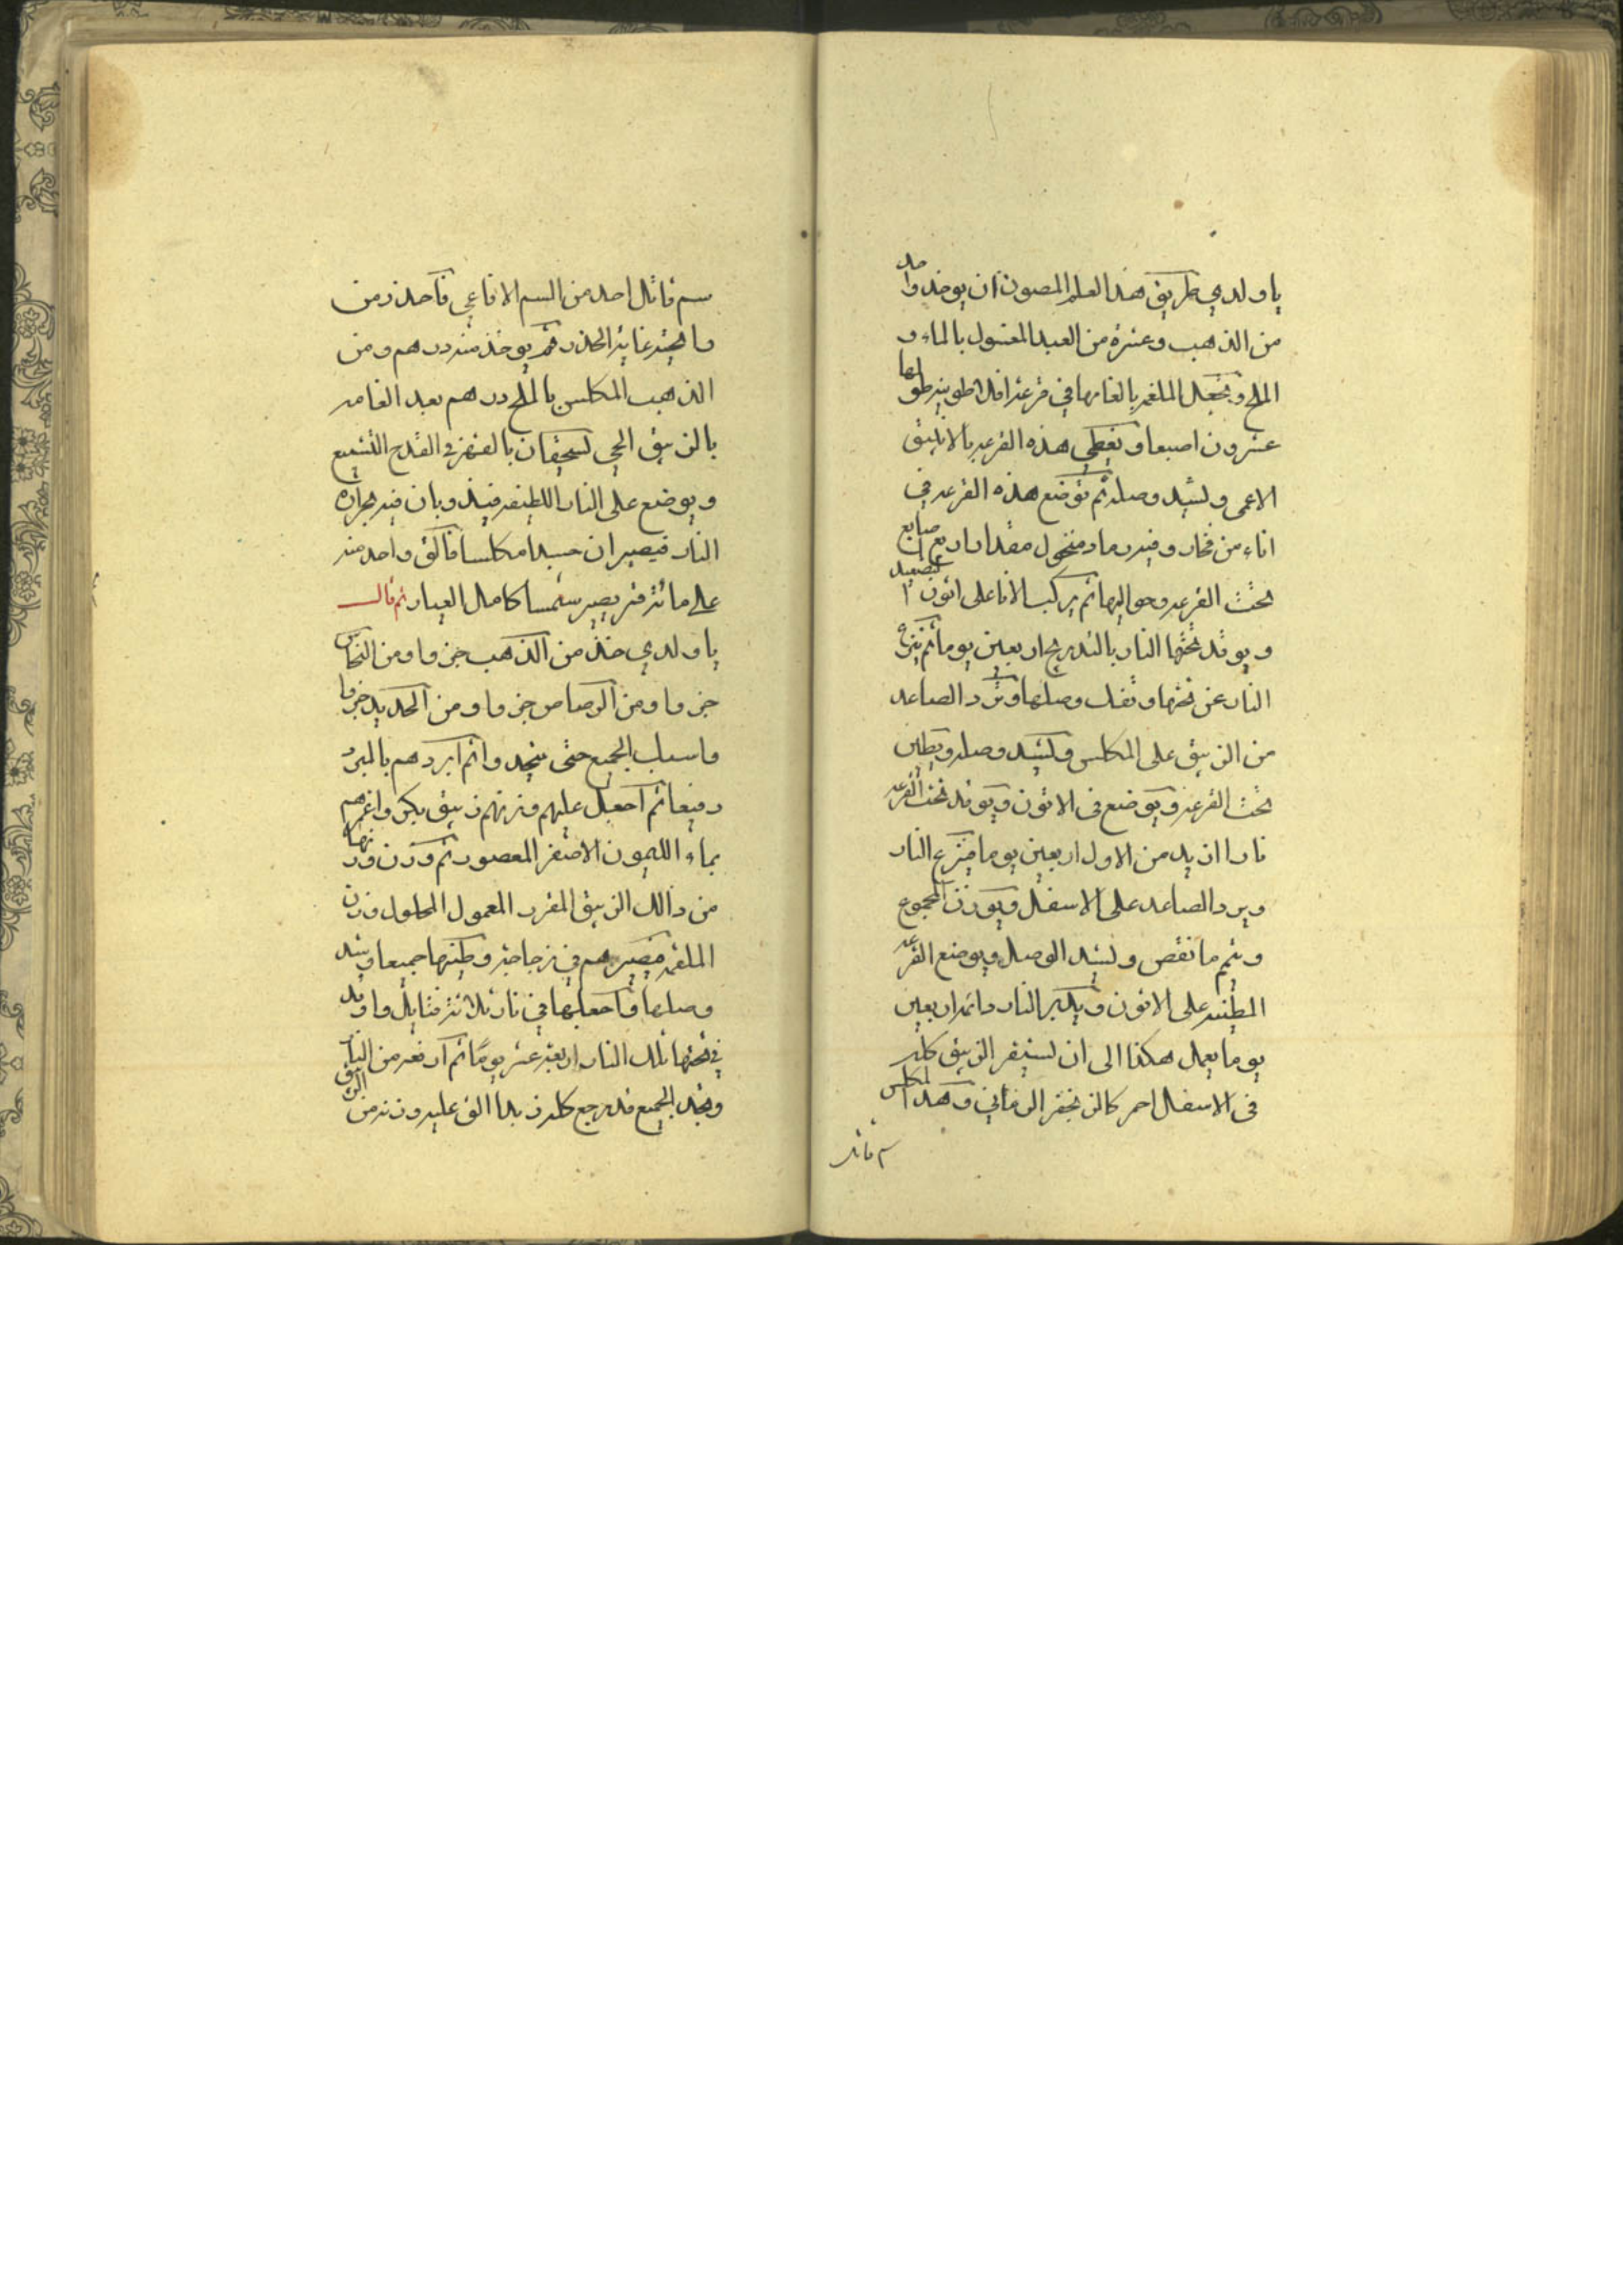 يا ولدي طريق هذا العلم المصون ان يوخذ واحد
من الذهب وعشرة من العبد المغسول بالماء و
الملح ويجعل الملغم بالغامها في قرعة افلاطونية طولها
عشرون اصبعا وتغطي هذه القرعه بالانبيق
الاعمى ويشيد وصله ثم توضع هذه القرعه في
اناء من فخار وفيه رماد منخول مقدار اربع اصابع
تحت القرعه وحواليها ثم يركب الانا على اتون التصعيد
ويوقد تحتها النار بالتدريج اربعين يوما ثم ينزع
النار عن تحتها وتفك وصلها وترد الصاعد
من الزيبق على المكلس ويشيد وصله ويطين
تحت القرعة ويوضع في الاتون ويوقد تحت القرعه
نارا ازيد من الاول اربعين يوما فينزع النار
ويرد الصاعد على الاسفل ويوزن المجموع
ويتم ما نقص ويشيد الوصل ويوضع القرعه
المطينه على الاتون ويكبر النار دائما اربعين
يوما يعمل هكذا الى ان يستقر الزيبق كله
في الاسفل احمر كالزنجفر الرماني وهذا المكلس
سم قاتل
سم قاتل احد من السم الافاعي فاحذر من
رايحته غاية الحذر ثم يوخذ منه درهم ومن
الذهب المكلس بالملح درهم بعد الغامه
بالزيبق الحي يسحقان بالفهر في القدح التشميع
ويوضع على النار اللطيفه فيذوبان فيه بحرارة
النار فيصيران جسدا مكلسا فالق واحد منه
على مائة قمر يصير شمسا كامل العيار ثم قال
يا ولدي خذ من الذهب جزوا ومن النحاس
جزوا ومن الرصاص جزوا ومن الحديد جزوا
واسبك الجميع حتى يتحدوا ثم ابردهم بالمبرد
رفيعا ثم اجعل عليهم وزنهم زيبق بكر واغمرهم
بماء الليمون الاصفر المعصور ثم وزن وزنها
من ذالك الزيبق المفرد المعمول المحلول وزن
الملغم فصيرهم في زجاجة وطينها جميعا وشد
وصلها واجعلها في نار ثلاثة فتايل واوقد
في تحتها تلك النار اربعة عشر يوما ثم ارفعه من النار
وتجد الجميع قد رجع كله زبدا الق عليه وزنه من الزيبق